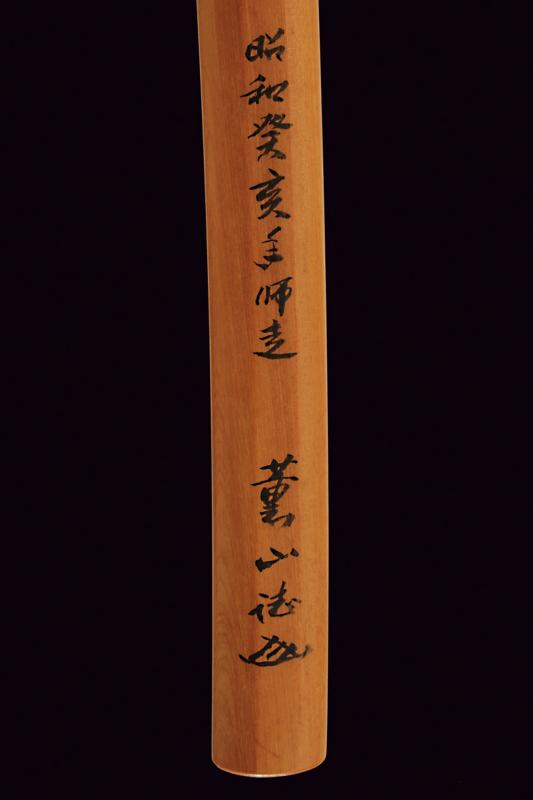 昭和癸亥年師走 薫山誌